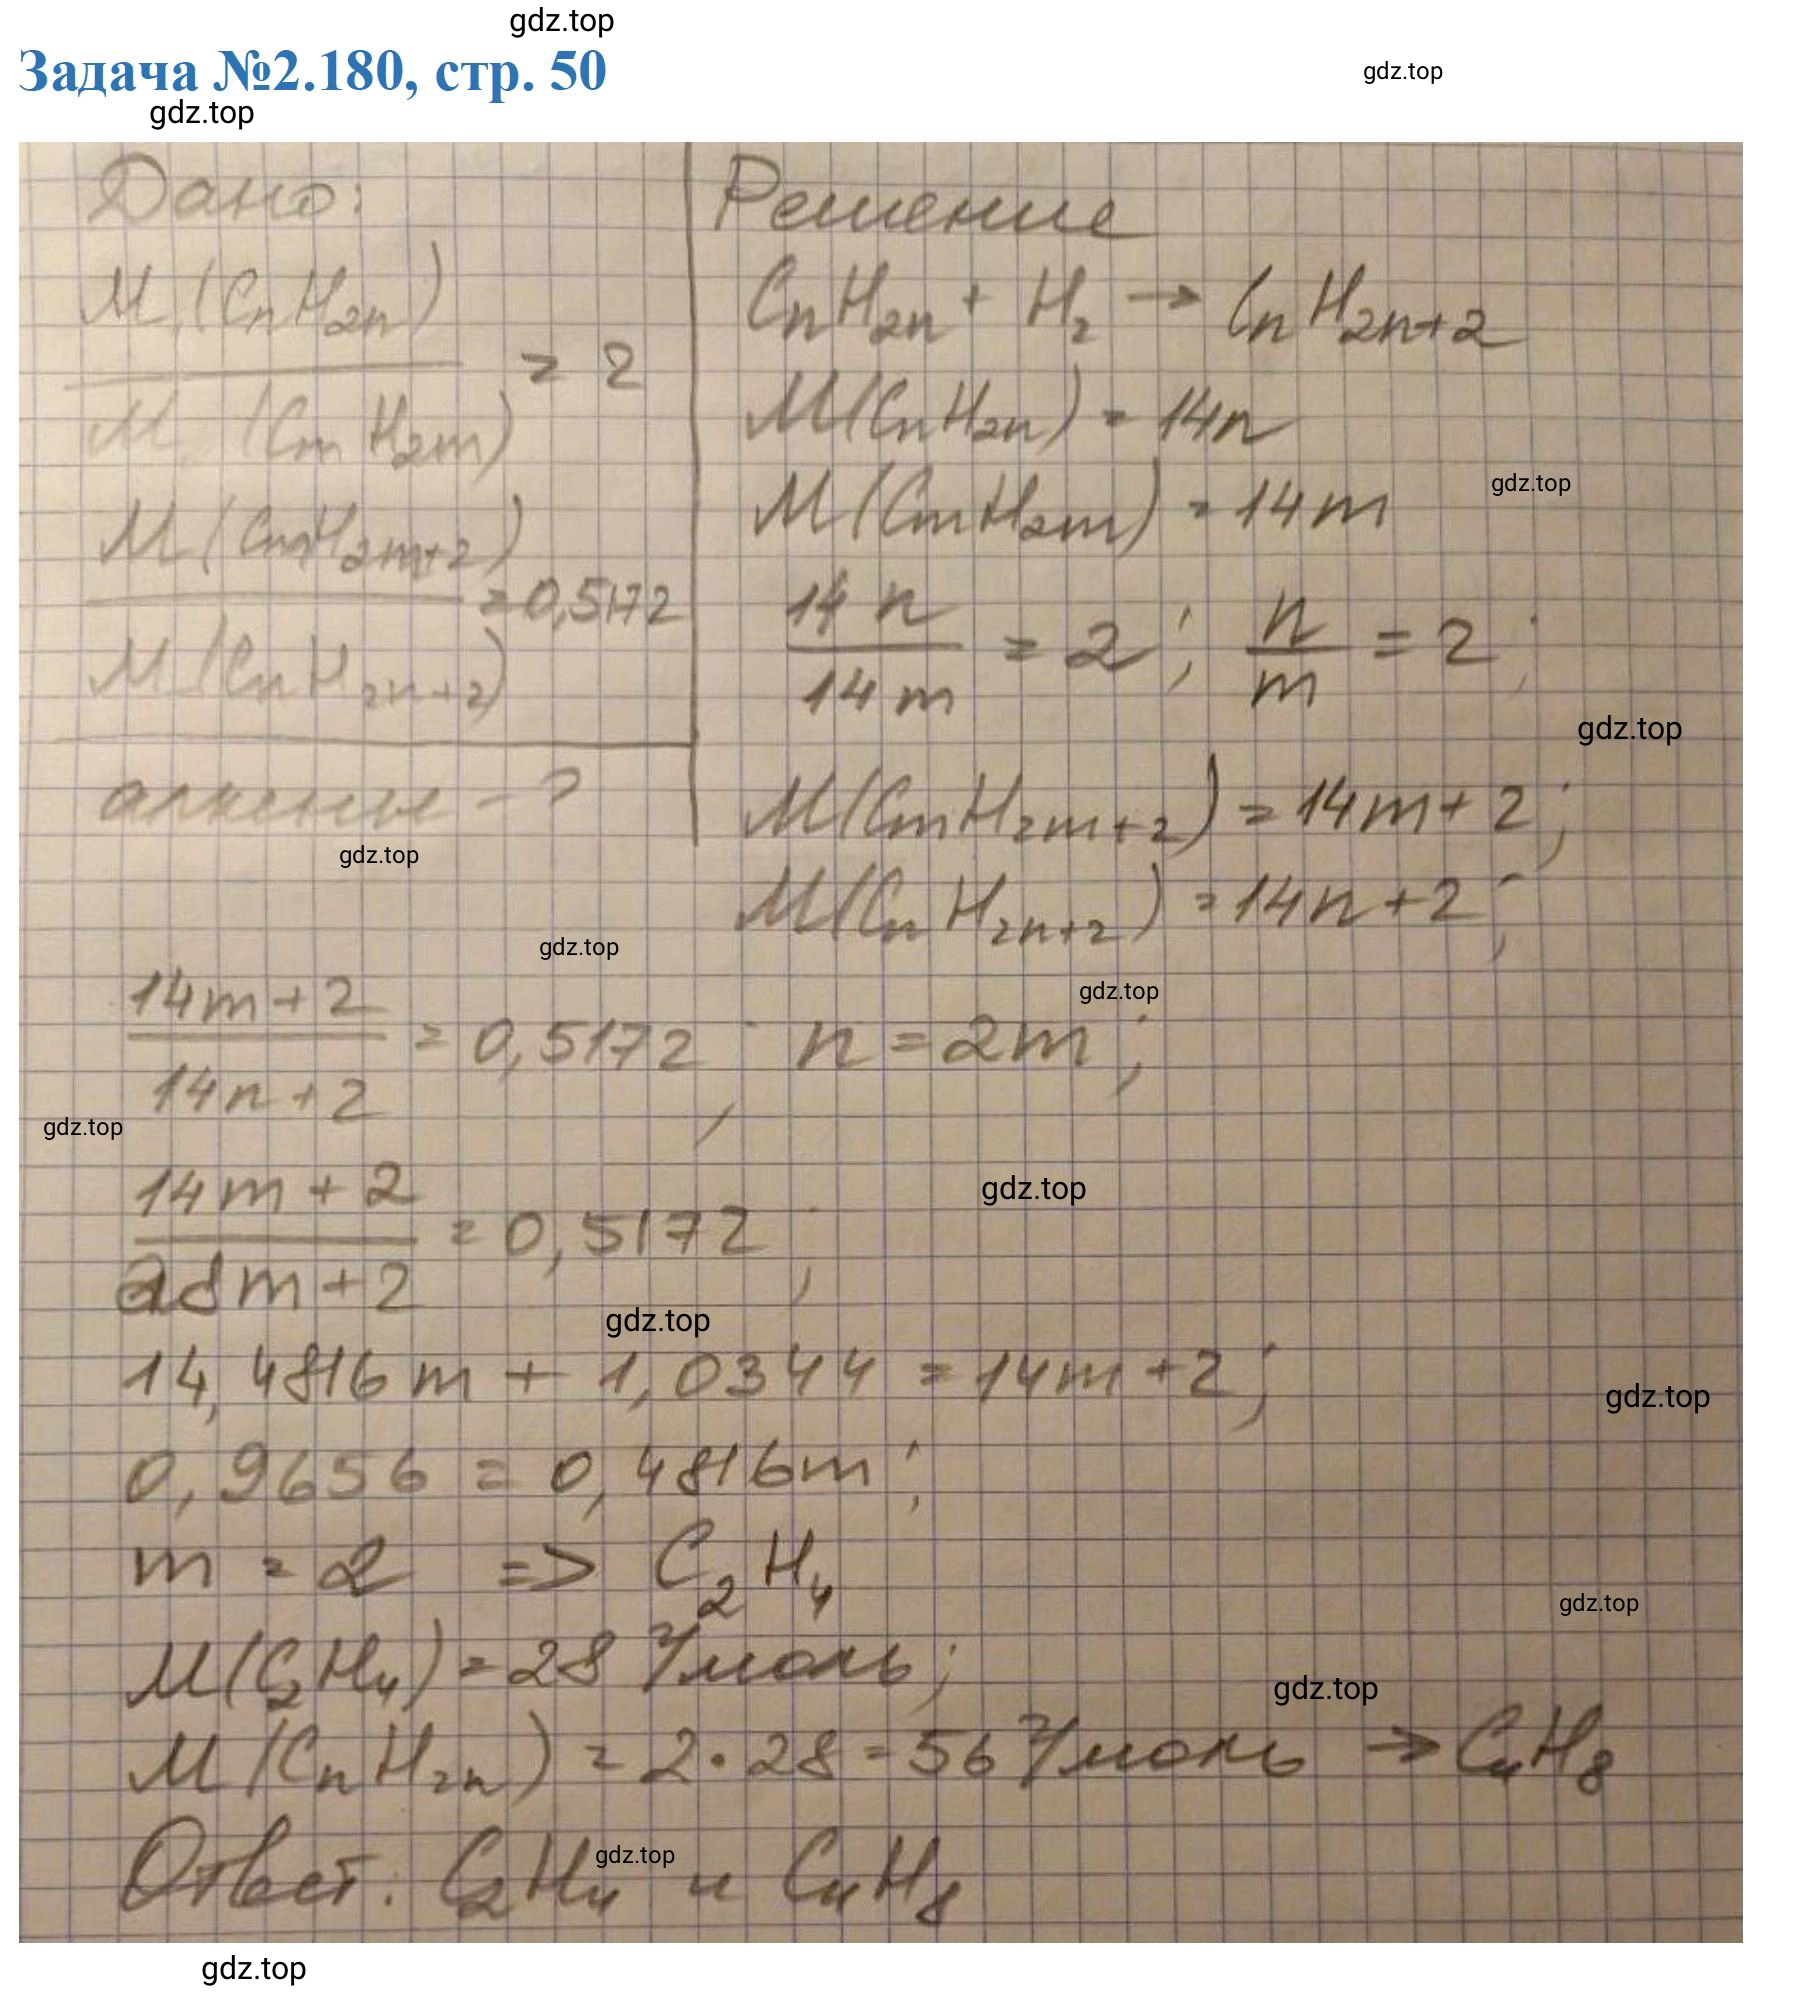 gdz.top
Задача №2.180, стр. 50
gdz.top
gdz.top
Дано:
M(CnH2n)
/ M(CmH2m) = 2
M(CmH2m+2)
/ M(CnH2n+2) = 0,5172
алкены - ?
Решение
CnH2n + H2 → CnH2n+2
M(CnH2n) = 14n
M(CmH2m) = 14m
gdz.top
14n / 14m = 2; n / m = 2;
gdz.top
M(CmH2m+2) = 14m + 2;
gdz.top
M(CnH2n+2) = 14n + 2;
gdz.top
gdz.top
14m + 2 / 14n + 2 = 0,5172; n = 2m;
gdz.top
gdz.top
14m + 2 / 28m + 2 = 0,5172;
gdz.top
14,4816m + 1,0344 = 14m + 2;
gdz.top
0,9656 = 0,4816m;
m = 2 => C2H4
gdz.top
M(C2H4) = 28 г/моль;
gdz.top
M(CnH2n) = 2·28 = 56 г/моль → C4H8
Ответ: C2H4 и C4H8
gdz.top
gdz.top